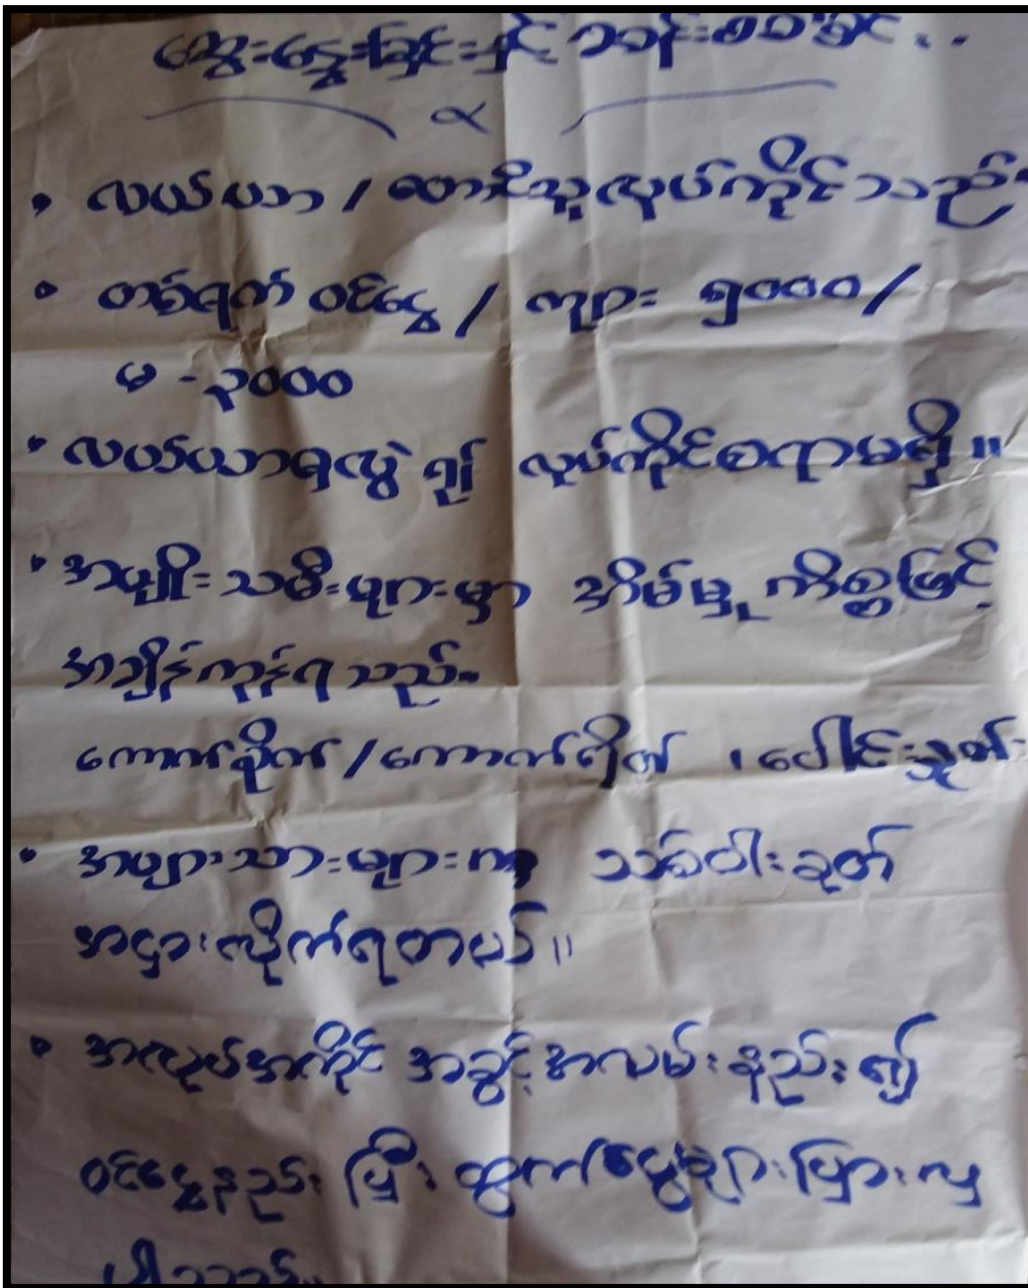 ဆွေးနွေးခြင်းနှင့်
• လယ်ယာ / တောင်သူလုပ်ကိုင်သည်။
• တစ်ရက် ဝင်ငွေ / ကျား ၅၀၀၀/
မ - ၃၀၀၀
• လယ်ယာမှလွဲ ၍ လုပ်ကိုင်စရာမရှိ။
• အမျိုးသမီးများမှာ အိမ်မှု ကိစ္စဖြင့်
အချိန်ကုန်ရသည်။
ကောက်စိုက် / ကောက်ရိတ် ၊ ပေါင်းနုတ်
• အမျာသားများက သစ်ဝါးခုတ်
အငှားလိုက်ရတယ်။
• အလုပ်အကိုင် အခွင့်အလမ်းနည်း၍
ဝင်ငွေနည်း ပြီး ထွက်ငွေများပြားလှ
ပါသည်။